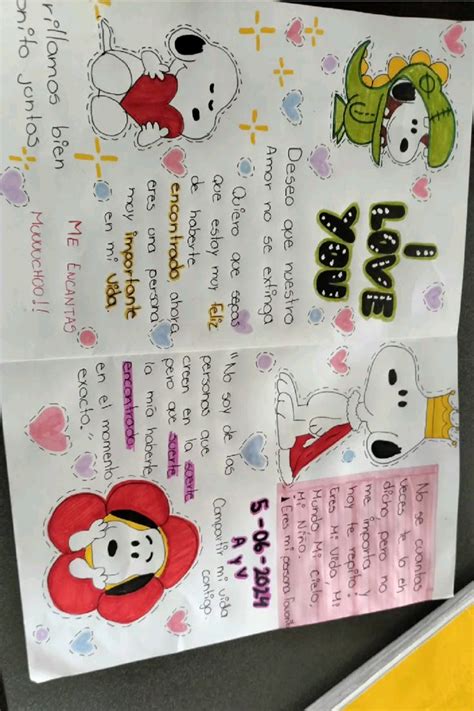 I
LOVE
YOU
Deseo que nuestro
Amor no se extinga
Quiero que sepas
que estoy muy Feliz
de haberte
encontrado, ahora
eres una persona
muy importante
en mi vida.
ME ENCANTAS
MUUUUCHOO!!
rillamos bien
onito juntos
No se cuantas
veces te lo eh
dicho pero no
me importa y
hoy te repito:
Eres Mi Vida, Mi
Mundo, Mi Cielo,
Mi Niño.
Eres mi persona favorit
"No soy de las
personas que
creen en la suerte
pero que suerte
la mía haberte
encontrado
en el momento
exacto."
Compartir mi vida
contigo
5-06-2024
A y V